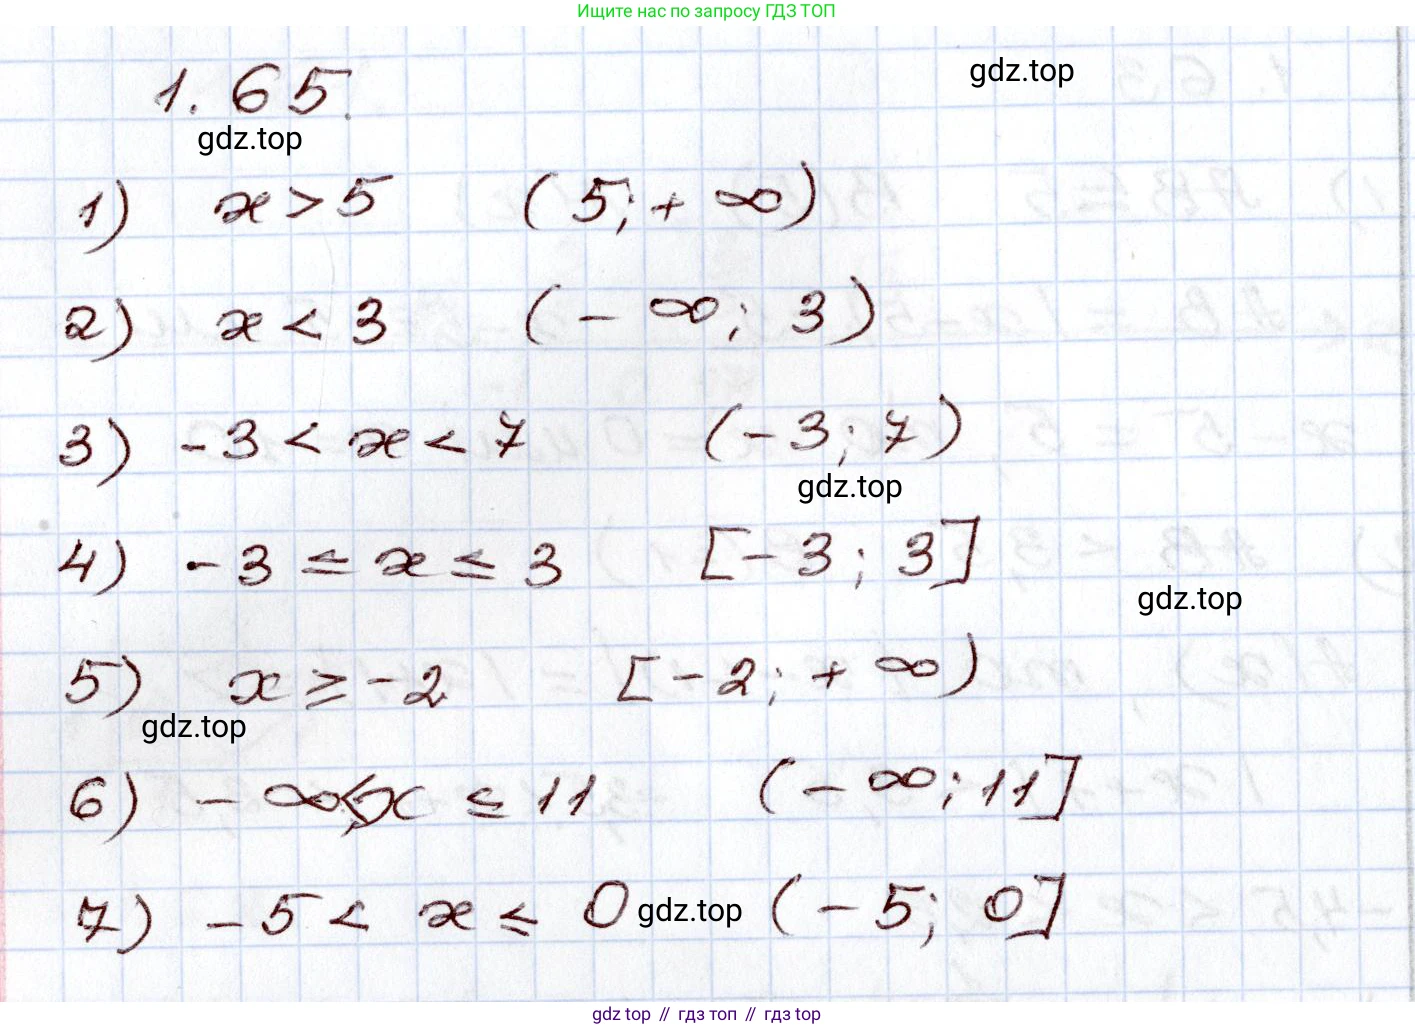 Ищите нас по запросу ГДЗ ТОП
1.65.
gdz.top
gdz.top
1) x > 5 (5; + ∞)
2) x < 3 (- ∞; 3)
3) -3 < x < 7 (-3; 7)
gdz.top
4) -3 ≤ x ≤ 3 [-3; 3]
gdz.top
5) x ≥ -2 [-2; + ∞)
gdz.top
6) - ∞ < x ≤ 11 (- ∞; 11]
7) -5 < x ≤ 0 gdz.top (-5; 0]
gdz top // гдз топ // gdz top